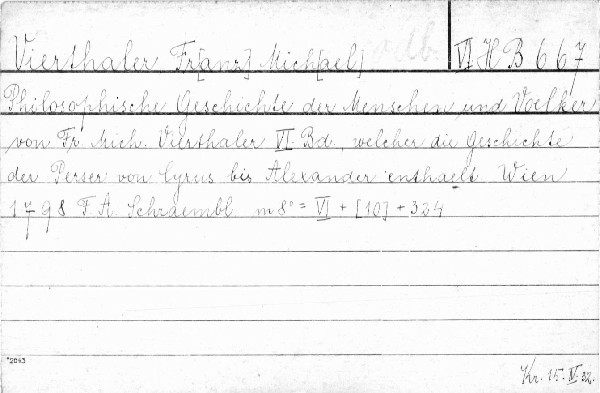 Vierthaler Fr[anz] Mich[ael] odb VI H B 667
Philosophische Geschichte der Menschen und Voelker
von Fr. Mich. Vierthaler VI Bd. welcher die Geschichte
der Perser von Cyrus bis Alexander enthaelt Wien
1798 F. A. Schraembl m8° = VI + [10] + 324
*2043
Kr. 15. IV. 32.